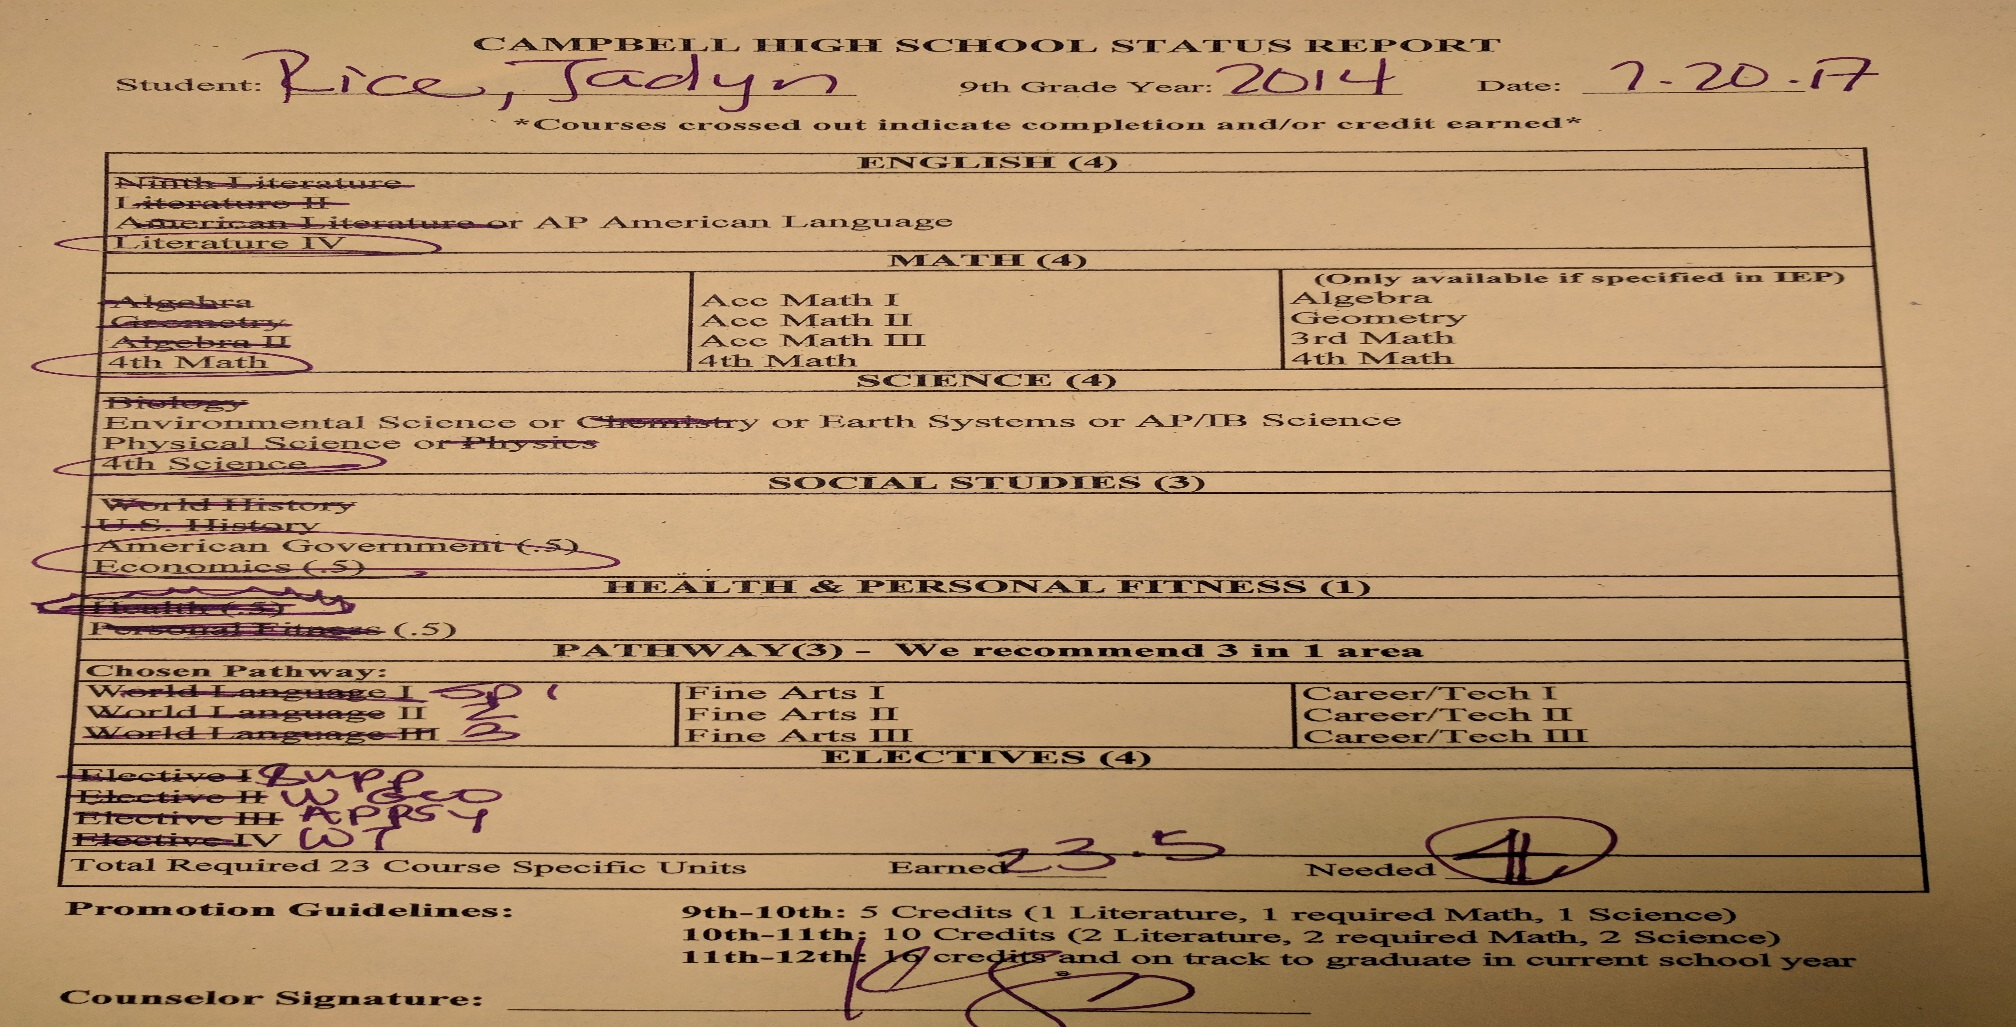 CAMPBELL HIGH SCHOOL STATUS REPORT
Student: Rice, Jadyn 9th Grade Year: 2014 Date: 7-20-17
*Courses crossed out indicate completion and/or credit earned*
ENGLISH (4)
Ninth Literature
Literature II
American Literature or AP American Language
Literature IV
MATH (4)
(Only available if specified in IEP)
Algebra Acc Math I Algebra
Geometry Acc Math II Geometry
Algebra II Acc Math III 3rd Math
4th Math 4th Math 4th Math
SCIENCE (4)
Biology
Environmental Science or Chemistry or Earth Systems or AP/IB Science
Physical Science or Physics
4th Science
SOCIAL STUDIES (3)
World History
U.S. History
American Government (.5)
Economics (.5)
HEALTH & PERSONAL FITNESS (1)
Health (.5)
Personal Fitness (.5)
PATHWAY(3) - We recommend 3 in 1 area
Chosen Pathway:
World Language I Sp 1 Fine Arts I Career/Tech I
World Language II 2 Fine Arts II Career/Tech II
World Language III 3 Fine Arts III Career/Tech III
ELECTIVES (4)
Elective I Supp
Elective II W Geo
Elective III APPSY
Elective IV WT
Total Required 23 Course Specific Units Earned 23.5 Needed 4
Promotion Guidelines: 9th-10th: 5 Credits (1 Literature, 1 required Math, 1 Science)
10th-11th: 10 Credits (2 Literature, 2 required Math, 2 Science)
11th-12th: 16 credits and on track to graduate in current school year
Counselor Signature: